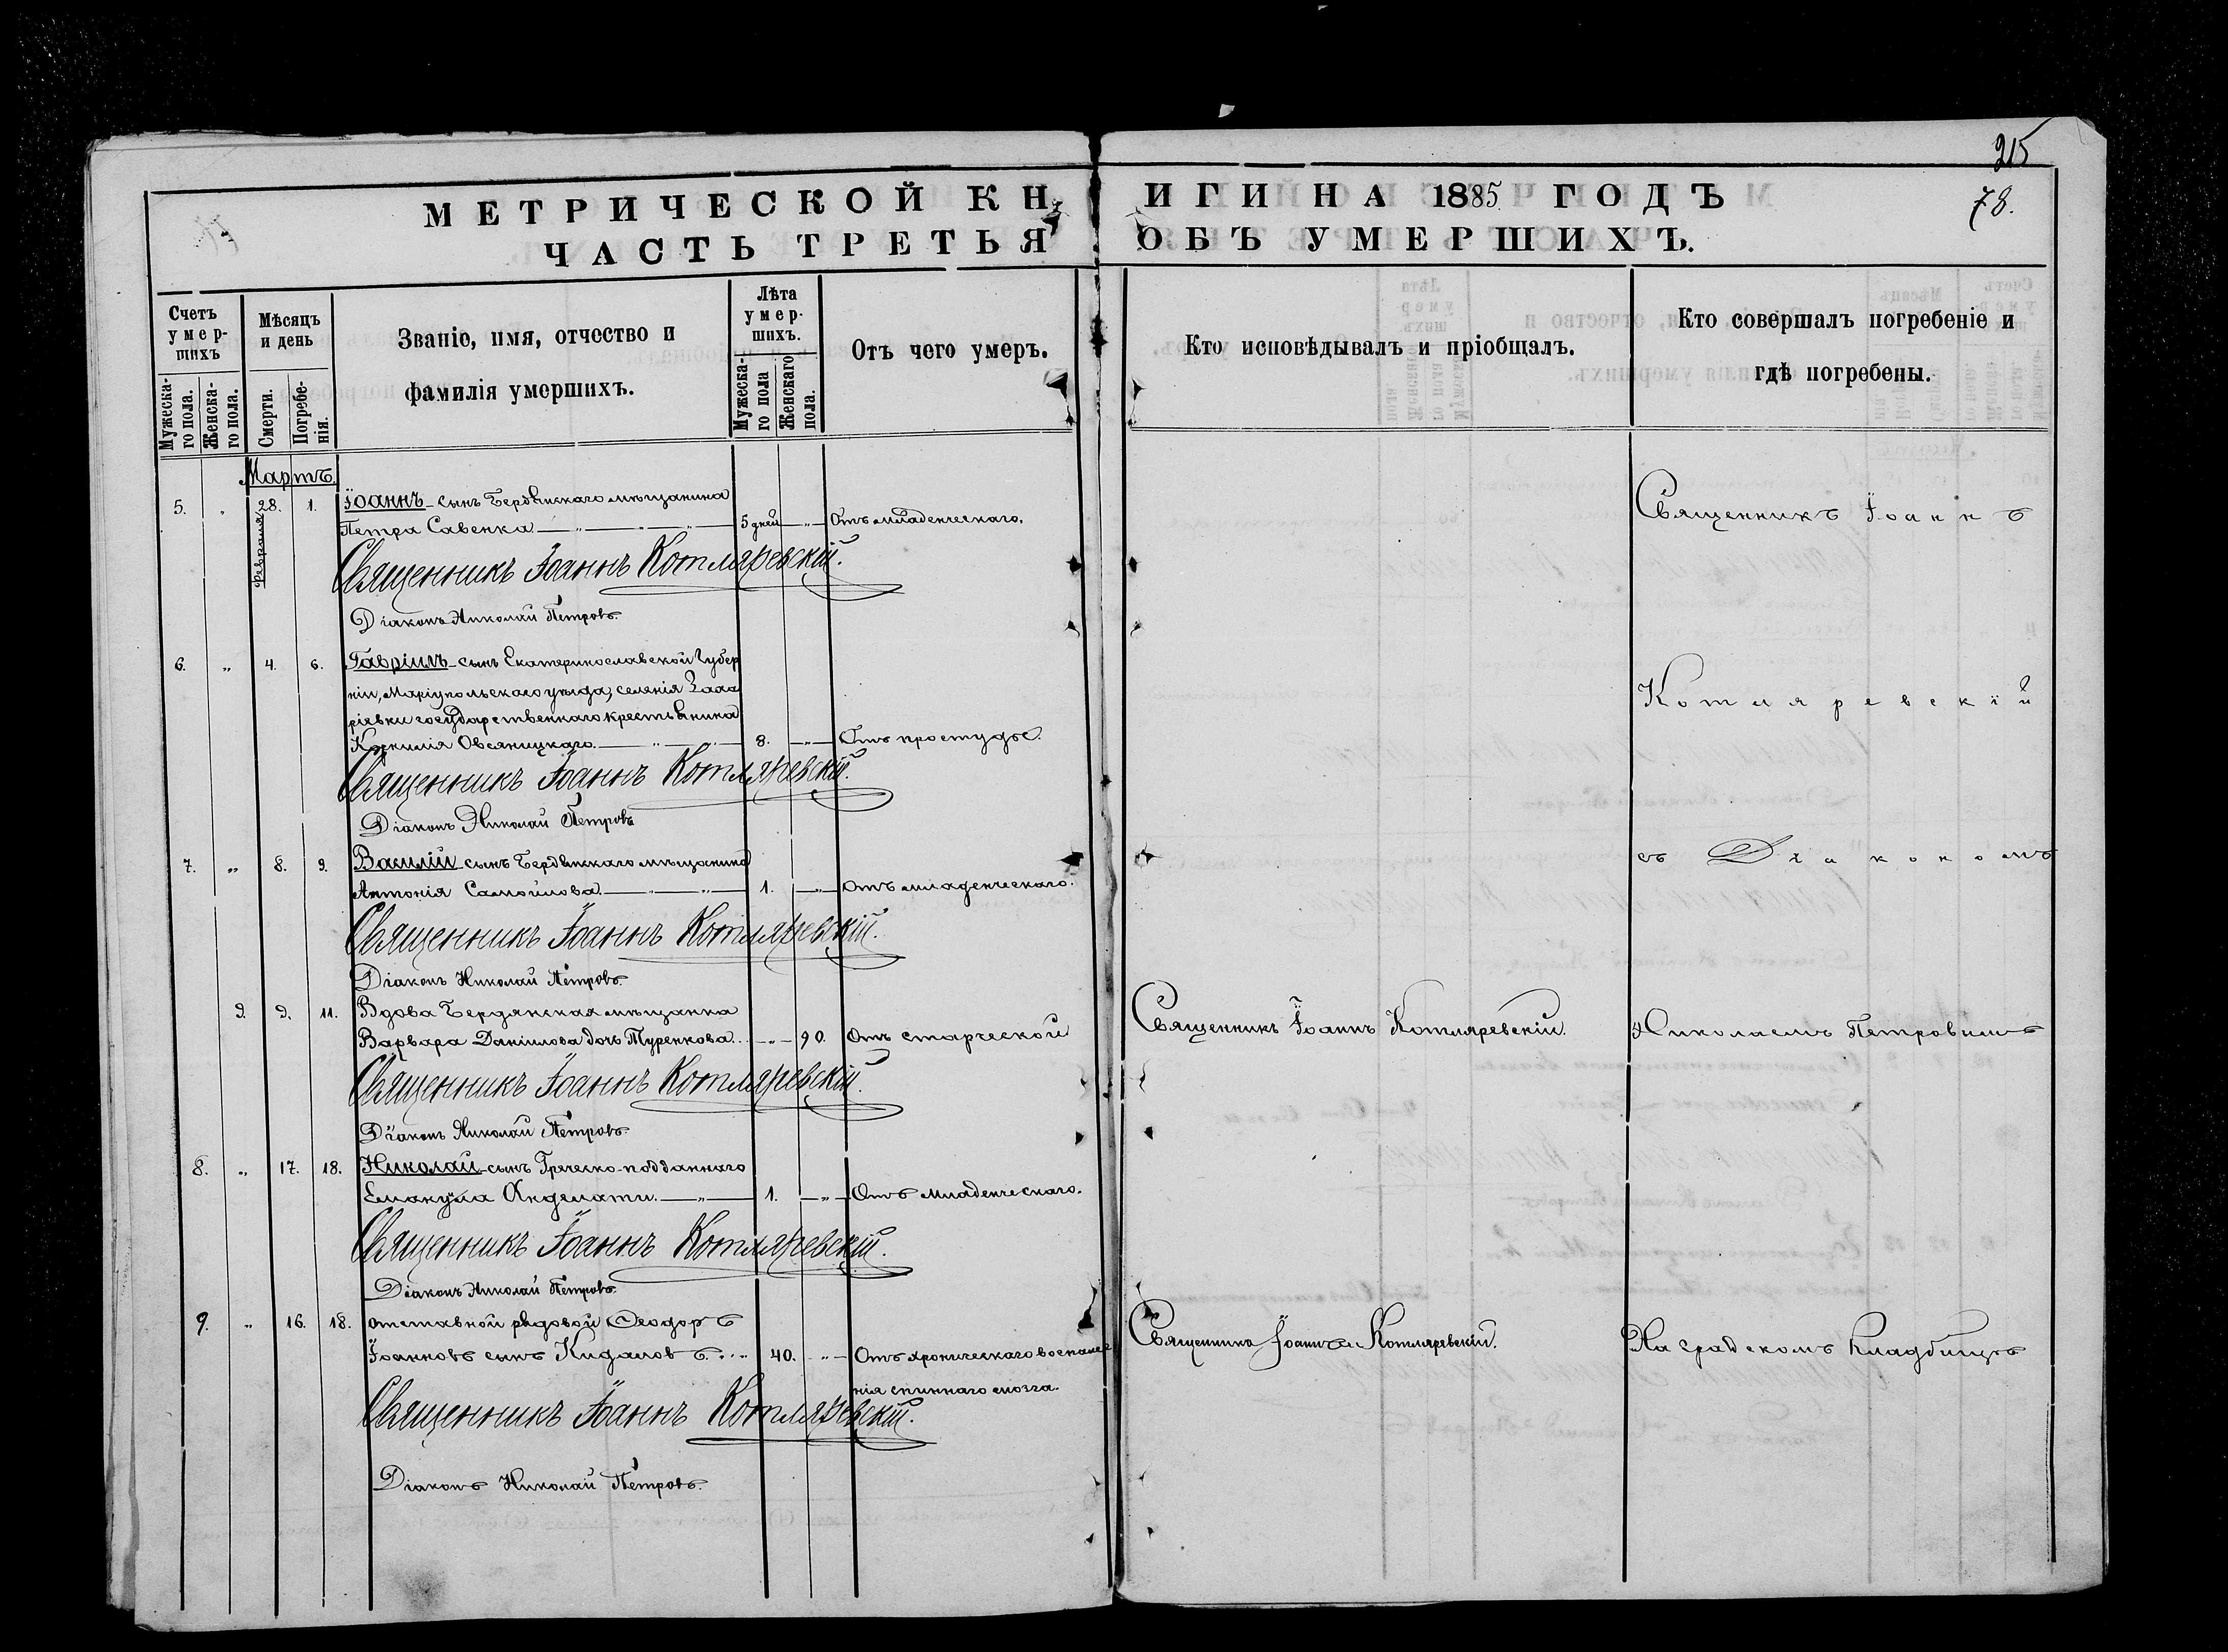 215
МЕТРИЧЕСКОЙ КНИГИ НА 1885 ГОДЪ
78.
ЧАСТЬ ТРЕТЬЯ ОБЪ УМЕРШИХЪ.
Счетъ умер-шихъ
Мужеска-го пола.
Женска-го пола.
Мѣсяцъ и день
Смерти.
Погребе-нія.
Званіе, имя, отчество и
фамилія умершихъ.
Лѣта умер-шихъ.
Мужеска-го пола
Женскаго пола.
Отъ чего умеръ.
Кто исповѣдывалъ и пріобщалъ.
Кто совершалъ погребеніе и
гдѣ погребены.
Мартъ
5. " 28. Февраля 1. Іоаннъ - сынъ Бердянскаго мѣщанина
Петра Савенка 5 дней " Отъ младенческаго.
Священникъ Іоаннъ
Священникъ Іоаннъ Котляревскій.
Діаконъ Николай Петровъ.
6. " 4. 6. Гавріилъ - сынъ Екатеринославской Губер
ніи, Маріупольскаго уѣзда, селенія Заха
ріевки государственнаго крестьянина
Котляревскій
Корнилія Овсяницкаго 8. " Отъ простуды.
Священникъ Іоаннъ Котляревскій.
Діаконъ Николай Петровъ
7. " 8. 9. Василій - сынъ Бердянскаго мѣщанина
съ Діакономъ
Антонія Самойлова 1. " Отъ младенческаго.
Священникъ Іоаннъ Котляревскій.
Діаконъ Николай Петровъ.
9. 9. 11. Вдова Бердянская мѣщанка
Варвара Даніилова дочь Туренкова. " 90. Отъ старческой
Священникъ Іоаннъ Котляревскій.
Николаемъ Петровымъ
Священникъ Іоаннъ Котляревскій.
Діаконъ Николай Петровъ.
8. " 17. 18. Николай - сынъ Греческо-подданнаго
1. " Отъ младенческаго.
Священникъ Іоаннъ Котляревскій.
Діаконъ Николай Петровъ.
9. " 16. 18. отставной рядовой Ѳеодоръ
Іоанновъ сынъ 40. " Отъ хроническаго воспале
Священникъ Іоаннъ Котляревскій.
На градскомъ кладбищѣ
нія спиннаго мозга.
Священникъ Іоаннъ Котляревскій.
Діаконъ Николай Петровъ.